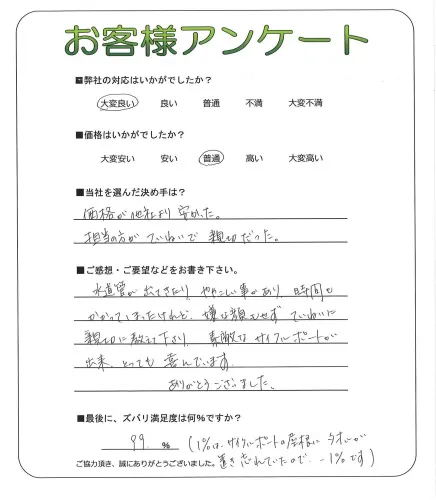 お客様アンケート
■弊社の対応はいかがでしたか？
大変良い 良い 普通 不満 大変不満
■価格はいかがでしたか？
大変安い 安い 普通 高い 大変高い
■当社を選んだ決め手は？
価格が他社より安かった。
担当の方がていねいで親切だった。
■ご感想・ご要望などをお書き下さい。
水道管が出てきたり、ややこしい事があり、時間も
かかってしまったけれど、嫌な顔もせずていねいに
親切に教えて下さり、素敵なサイクルポートが
出来、とっても喜んでいます。
ありがとうございました。
■最後に、ズバリ満足度は何％ですか？
99 ％ (1%は、サイクルポートの屋根にタオルが
置き忘れていたので、-1%です)
ご協力頂き、誠にありがとうございました。